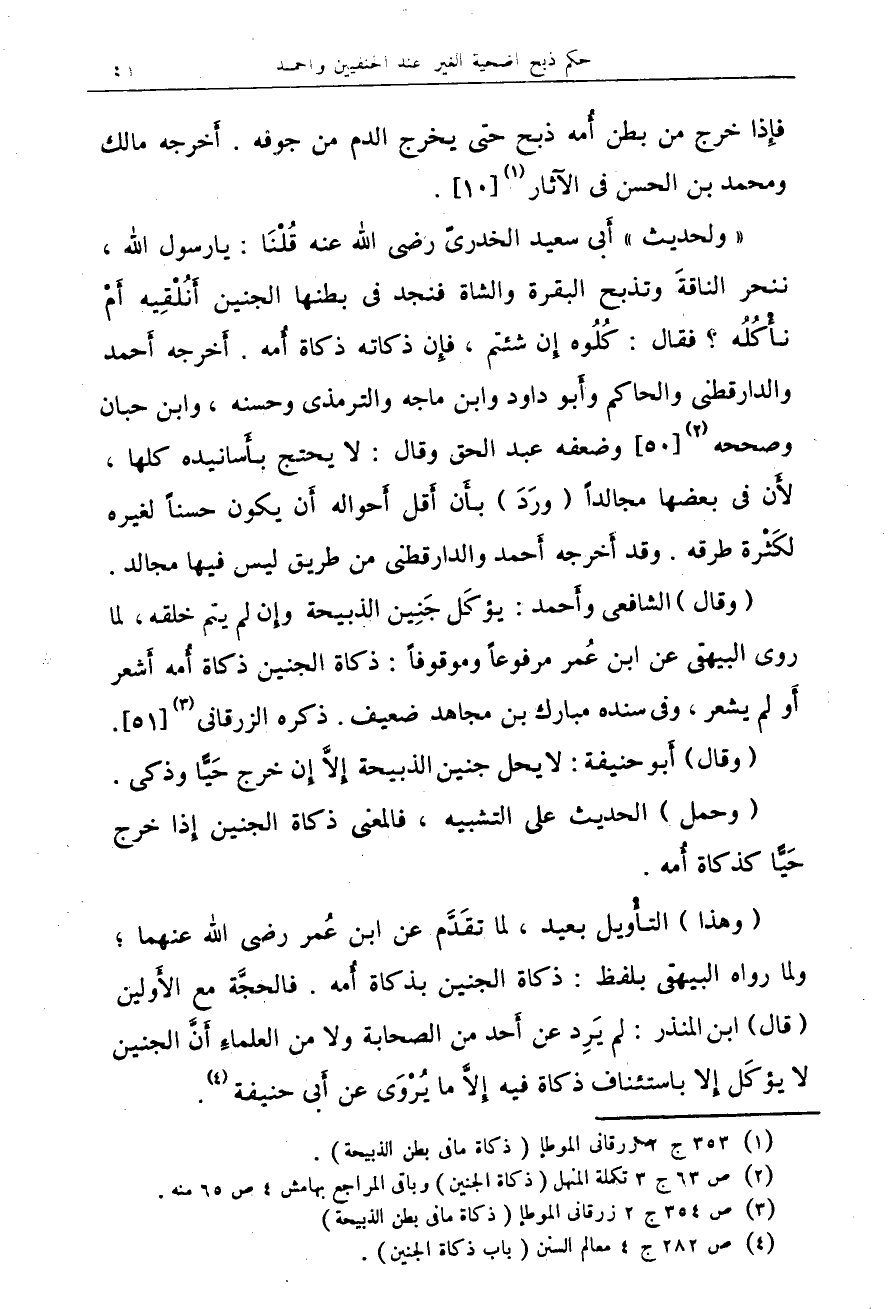 حكم ذبح اضحية الغير عند الحنفيين واحمد ٤١
فإذا خرج من بطن أُمه ذبح حتى يخرج الدم من جوفه . أَخرجه مالك
ومحمد بن الحسن فى الآثار (١) [١٠] .
« ولحديث » أَبى سعيد الخدرىّ رضى الله عنه قُلْنَا : يارسول الله ،
ننحر الناقةَ وتذبح البقرة والشاة فنجد فى بطنها الجنين أَنُلْقِيه أَمْ
نأْكُلُه ؟ فقال : كُلُوه إن شئتم ، فإن ذكاته ذكاة أُمه . أَخرجه أَحمد
والدارقطنى والحاكم وأَبو داود وابن ماجه والترمذى وحسنه ، وابن حبان
وصححه (٢) [٥٠] وضعفه عبد الحق وقال : لا يحتج بأَسانيده كلها ،
لأَن فى بعضها مجالداً ( ورَدَ ) بأَن أَقل أَحواله أَن يكون حسناً لغيره
لكَثْرة طرقه . وقد أَخرجه أَحمد والدارقطنى من طريق ليس فيها مجالد .
( وقال ) الشافعى وأَحمد : يؤكَل جَنِين الذبيحة وإن لم يتم خلقه، لما
روى البيهقى عن ابن عُمر مرفوعاً وموقوفاً : ذكاة الجنين ذكاة أُمه أَشعر
أَو لم يشعر ، وفى سنده مبارك بن مجاهد ضعيف . ذكره الزرقانى (٣) [٥١].
( وقال ) أَبو حنيفة : لا يحل جنين الذبيحة إلاَّ إن خرج حَيًّا وذكى .
( وحمل ) الحديث على التشبيه ، فالمعنى ذكاة الجنين إذا خرج
حَيًّا كذكاة أُمه .
( وهذا ) التأْويل بعيد ، لما تقَدَّم عن ابن عُمر رضى الله عنهما ؛
ولما رواه البيهقى بلفظ : ذكاة الجنين بذكاة أُمه . فالحجَّة مع الأَولين
( قال ) ابن المنذر : لم يَرِد عن أَحد من الصحابة ولا من العلماءِ أَنَّ الجنين
لا يؤكَل إلا باستئناف ذكاة فيه إلاَّ ما يُرْوَى عن أَبى حنيفة (٤) .
(١) ٣٥٣ ج زرقانى الموطإ ( ذكاة مافى بطن الذبيحة ) .
(٢) ص ٦٣ ج ٣ تكملة المنهل ( ذكاة الجنين ) وباقى المراجع بهامش ٤ ص ٦٥ منه .
(٣) ص ٣٥٤ ج ٢ زرقانى الموطإ ( ذكاة مافى بطن الذبيحة )
(٤) ص ٢٨٢ ج ٤ معالم السنن ( باب ذكاة الجنين ) .